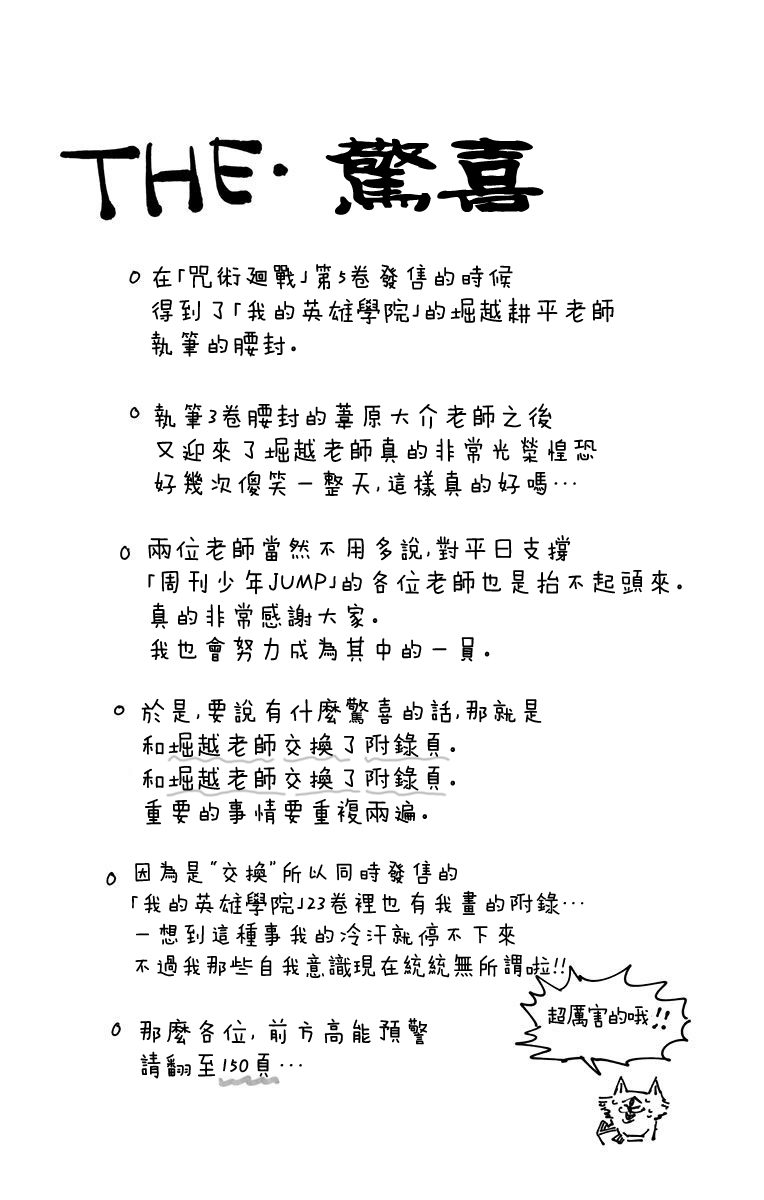 THE·驚喜
○ 在「咒術廻戰」第5卷發售的時候
得到了「我的英雄學院」的堀越耕平老師
執筆的腰封.
○ 執筆3卷腰封的葦原大介老師之後
又迎來了堀越老師真的非常光榮惶恐
好幾次傻笑一整天,這樣真的好嗎…
○ 兩位老師當然不用多說,對平日支撐
「周刊少年JUMP」的各位老師也是抬不起頭來.
真的非常感謝大家.
我也會努力成為其中的一員.
○ 於是,要說有什麼驚喜的話,那就是
和堀越老師交換了附錄頁.
和堀越老師交換了附錄頁.
重要的事情要重複兩遍.
○ 因為是"交換"所以同時發售的
「我的英雄學院」23卷裡也有我畫的附錄…
一想到這種事我的冷汗就停不下來
不過我那些自我意識現在統統無所謂啦!!
超厲害的哦!!
○ 那麼各位, 前方高能預警
請翻至150頁…